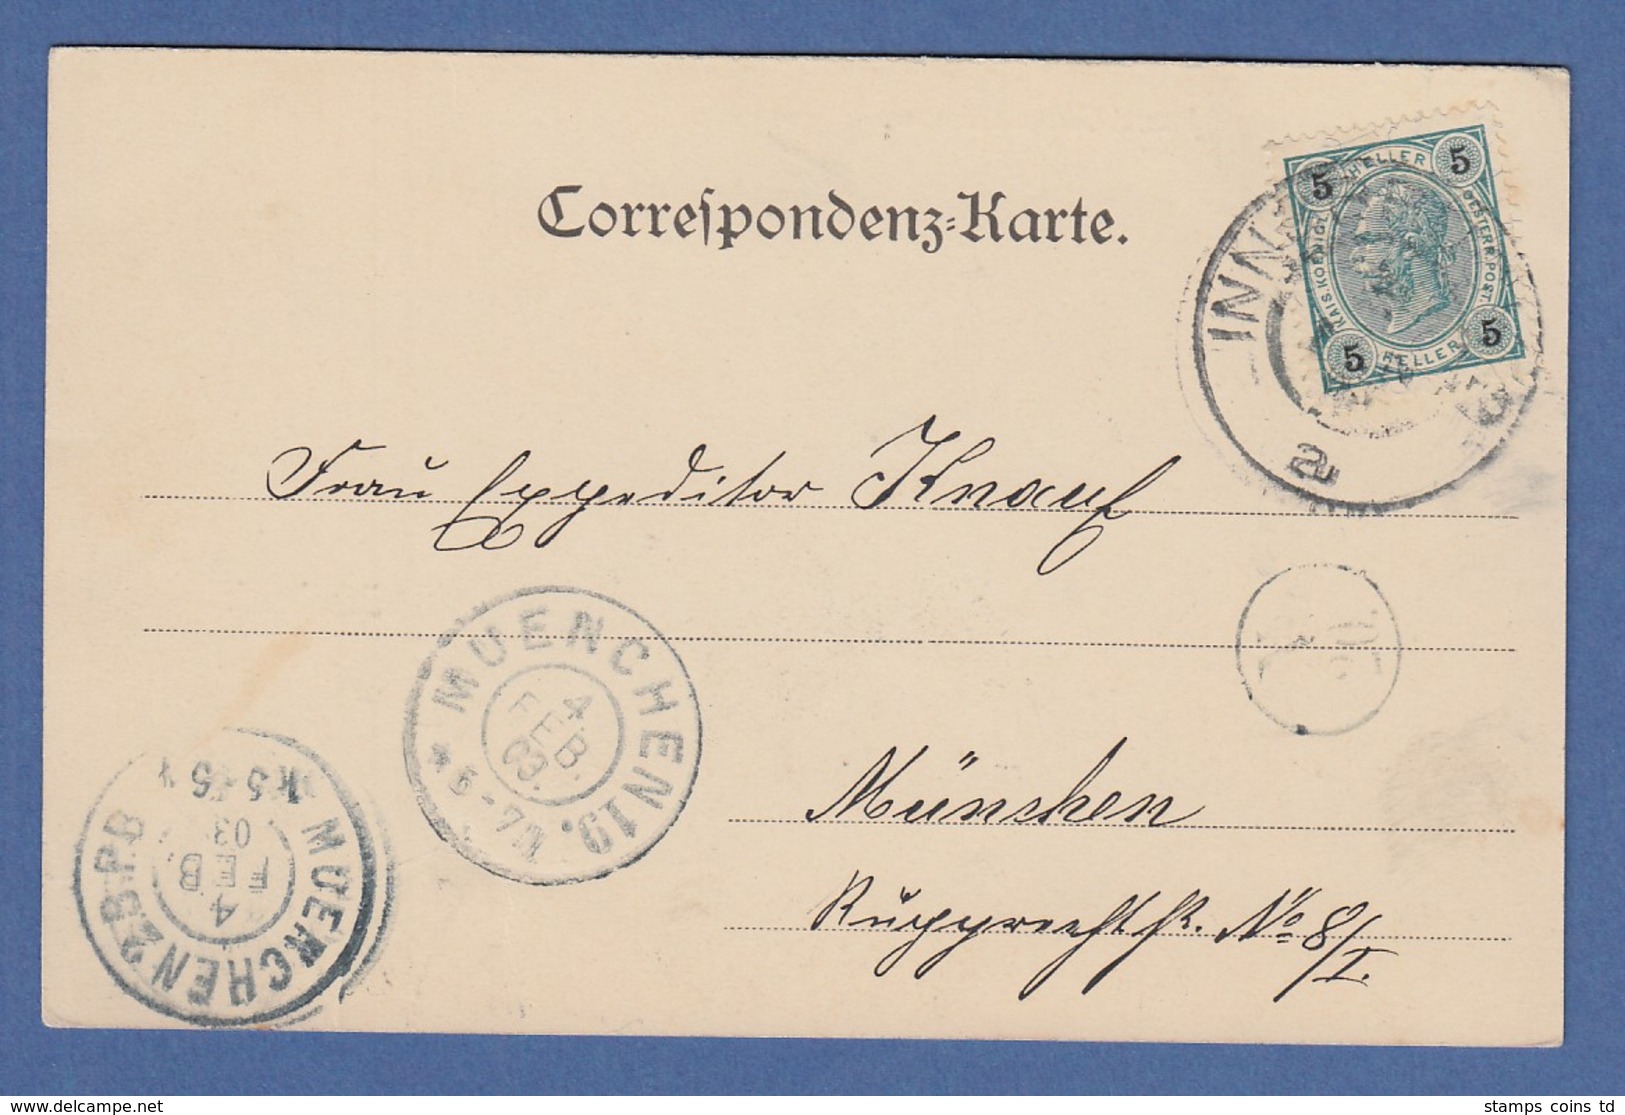 Correspondenz-Karte.
5 HELLER 5
KAIS. KOENIGL. OESTERR. POST.
5 HELLER 5
INNS
2
Frau Expeditor Knauf
MUENCHEN 19.
4
FEB.
03.
* 6-7 N
MUENCHEN 2 B.P.B
4
FEB.
03
5-6
München
Rupprechtstr. No 8/I.
www.delcampe.net
stamps coins td